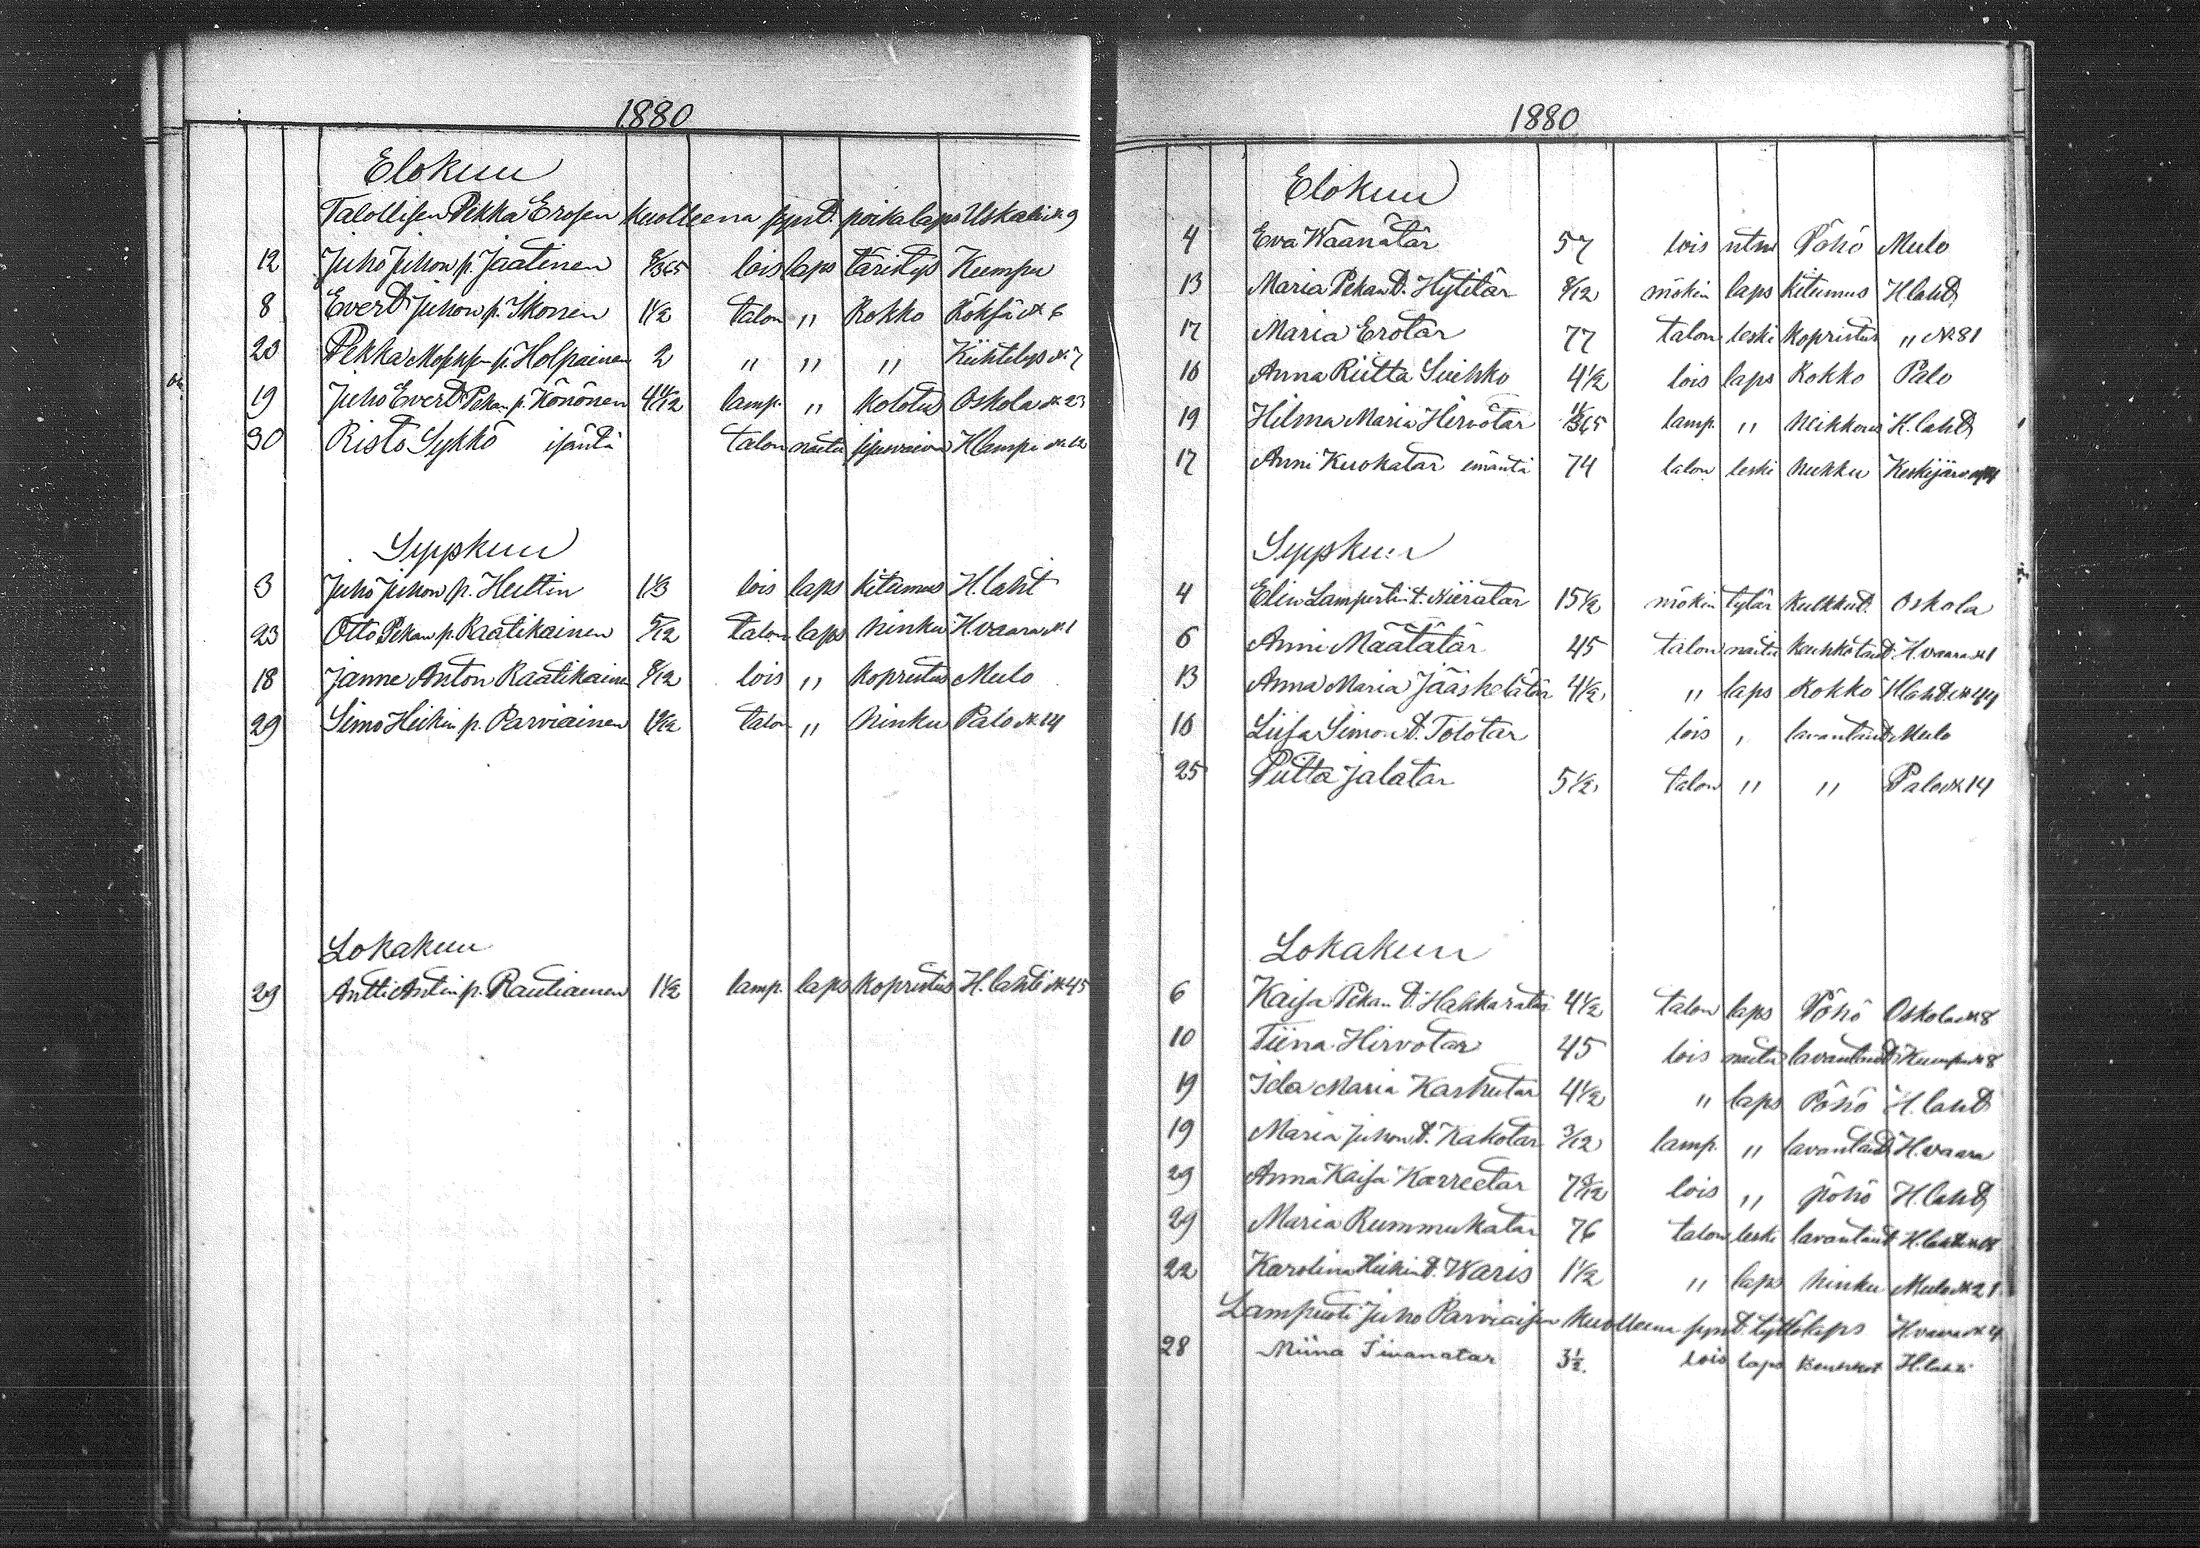 1880
Elokuu
Talollisen Pekka Erosen kuolleena synt. poikalaps Uskali № 9
12 Juho Juhon p. Jaatinen 8/365 lois laps täristys Kumpu
8 Evert Juhon p. Ikonen 1½ talon " Rokko Röksä № 6
20 Pekka p. Holpainen 2 " " " Kiihtelys № 7
19 Juho Evert Pekan p. Könönen 4 11/12 lamp. " kolotus Oskola № 23
30 Risto Sykkö isäntä talon naitu H.lampi № 12
Syyskuu
3 Juho Juhon p. Hultin 1⅓ lois laps kitumus H.laht
23 Otto Pekan p. Raatikainen 5/12 talon laps hinku H.vaara № 1
18 Janne Anton Raatikainen 8/12 lois " kopristus Mulo
29 Simo Heikin p. Parviainen talon " hinku Palo № 14
Lokakuu
29 Antti Antin p. Rautiainen 1½ lamp. laps kopristus H.lahti № 45
1880
Elokuu
4 Eva Wäänätär 57 lois ntm Pöhö Mulo
13 Maria Pekan t. Hytitär 8/12 mökin laps kitumus H.laht
17 Maria Erotar 77 talon leski kopristus " № 81
16 Anna Riitta Suihko 4½ lois laps Rokko Palo
19 Hilma Maria Hirvotar lamp. " heikkous H.laht
17 Anni Kuokatar emäntä 74 talon leski nukku Keskijärvi
Syyskuu
4 Elin Lampertin t. 15½ mökin tytär kulkkut. Oskola
6 Anni Määtätär 45 talon naitu keuhkotaut H.vaara № 1
13 Anna Maria Jääskelätär 4½ " laps Rokko H.laht № 44
16 Liisa Simon t. Tolotar lois " lavantaut Mulo
25 Riitta Jalatar 5½ talon " " Palo № 14
Lokakuu
6 Kaisa Pekan t. Hakkaratar 4½ talon laps Pöhö Oskola № 8
10 Tiina Hirvotar 45 lois naitu lavantaut Kumpu № 8
19 Ida Maria Karhutar 4½ " laps Pöhö H.laht
19 Maria Juhon t. Kakotar 3/12 lamp. " lavantaut H.vaara
29 Anna Kaisa Karreetar lois " pöhö H.laht
29 Maria Rummukatar 76 talon leski lavantaut H.laht
22 Karolina Heikin t. Waris 1½ " laps hinku Mulo № 21
Lampuoti Juho Parviaisen kuolleena synt. tyttölaps H.vaara № 4
28 Miina Tiivanatar 3½ lois laps H.lahti